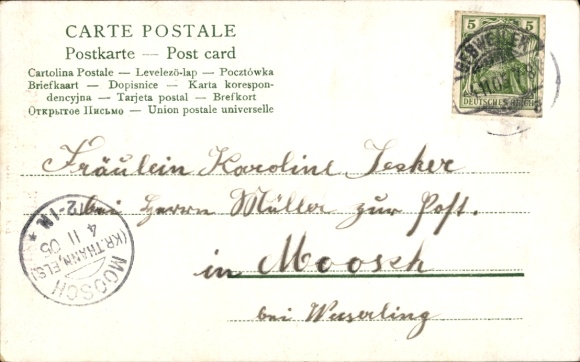 CARTE POSTALE
Postkarte — Post card
Cartolina Postale — Levelező-lap — Pocztówka
Briefkaart — Dopisnice — Karta korespon-
dencyjna — Tarjeta postal — Brefkort
Открытое Письмо — Union postale universelle
5 5
DEUTSCHES REICH
GEBWEILER
Fräulein Karoline Jesker
bei Herrn Müller zur Post.
in Moosch
bei Wesserling
MOOSCH
(KR. THANN, ELS.)
4 11 05
12-1N